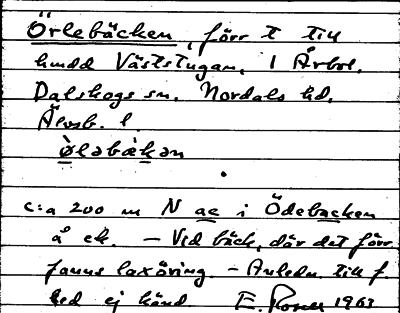 Örlebäcken, förr t till
hmdd Väststugan, 1 Årbol,
Dalskogs sn. Nordals hd.
Älvsb. l.
ø̀ləbæ̀kən
c:a 200 m N ae i Ödebacken
å ek. – Vid bäck, där det förr
fanns laxöring. – Anledn. till f.
led ej känd. E. Rosell 1963